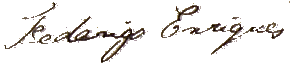 Federigo Enriques